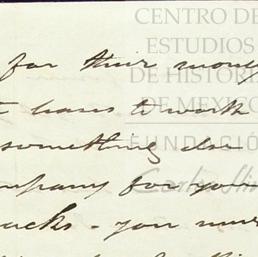 CENTRO DE
ESTUDIOS
DE HISTORIA
DE MEXICO
FUNDACIÓN
Carlos Slim
for their money
have to work
something else
company for your
sacks - you must